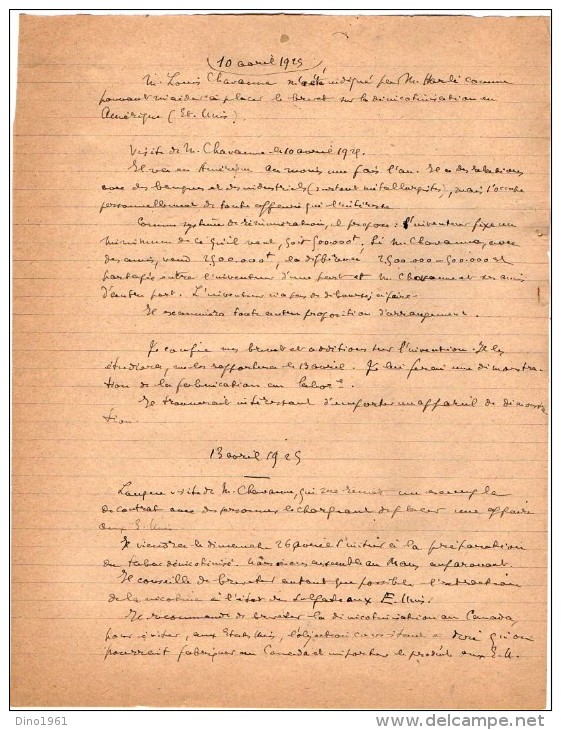 10 avril 1925
M. Louis Chavanne m'a été indiqué par M. Harlé comme
pouvant m'aider à placer le brevet sur la dénicotinisation en
Amérique (Et. Unis).
Visite de M. Chavanne le 10 avril 1925.
Il va en Amérique au moins une fois l'an. Il a des relations
avec des banques et des industriels (surtout métallurgistes), mais s'occupe
personnellement de toute affaire qui l'intéresse.
Comme système de rémunération, il propose : l'inventeur fixe un
minimum de ce qu'il veut, soit 500.000 f. Si M. Chavanne, avec
des amis, vend 2.500.000 f, la différence, 2.500.000 - 500.000 est
partagée entre l'inventeur d'une part et M. Chavanne et ses amis
d'autre part. L'inventeur n'a pas de débours à faire.
Il examinera toute autre proposition d'arrangement.
Je confie mes brevets et additions sur l'invention. Il les
étudiera, me les rapportera le 13 avril. Je lui ferai une démonstra-
tion de la fabrication au labore.
Il trouverait intéressant d'emporter un appareil de démonstra
tion.
13 avril 1925
Longue visite de M. Chavanne, qui me remet un exemple
de contrat avec des personnes le chargeant de placer une affaire
aux E. Unis
Il viendra le dimanche 26 avril s'initier à la préparation
du tabac dénicotinisé. ensemble au Mans auparavant.
Il conseille de breveter autant que possible l'extraction
de la nicotine à l'état de sulfate aux E. Unis.
Il recommande de breveter la dénicotinisation au Canada,
pour éviter, aux Etats Unis, l'objection consistant à dire qu'on
pourrait fabriquer au Canada et importer le produit aux E. U.
Dino1961
www.delcampe.net